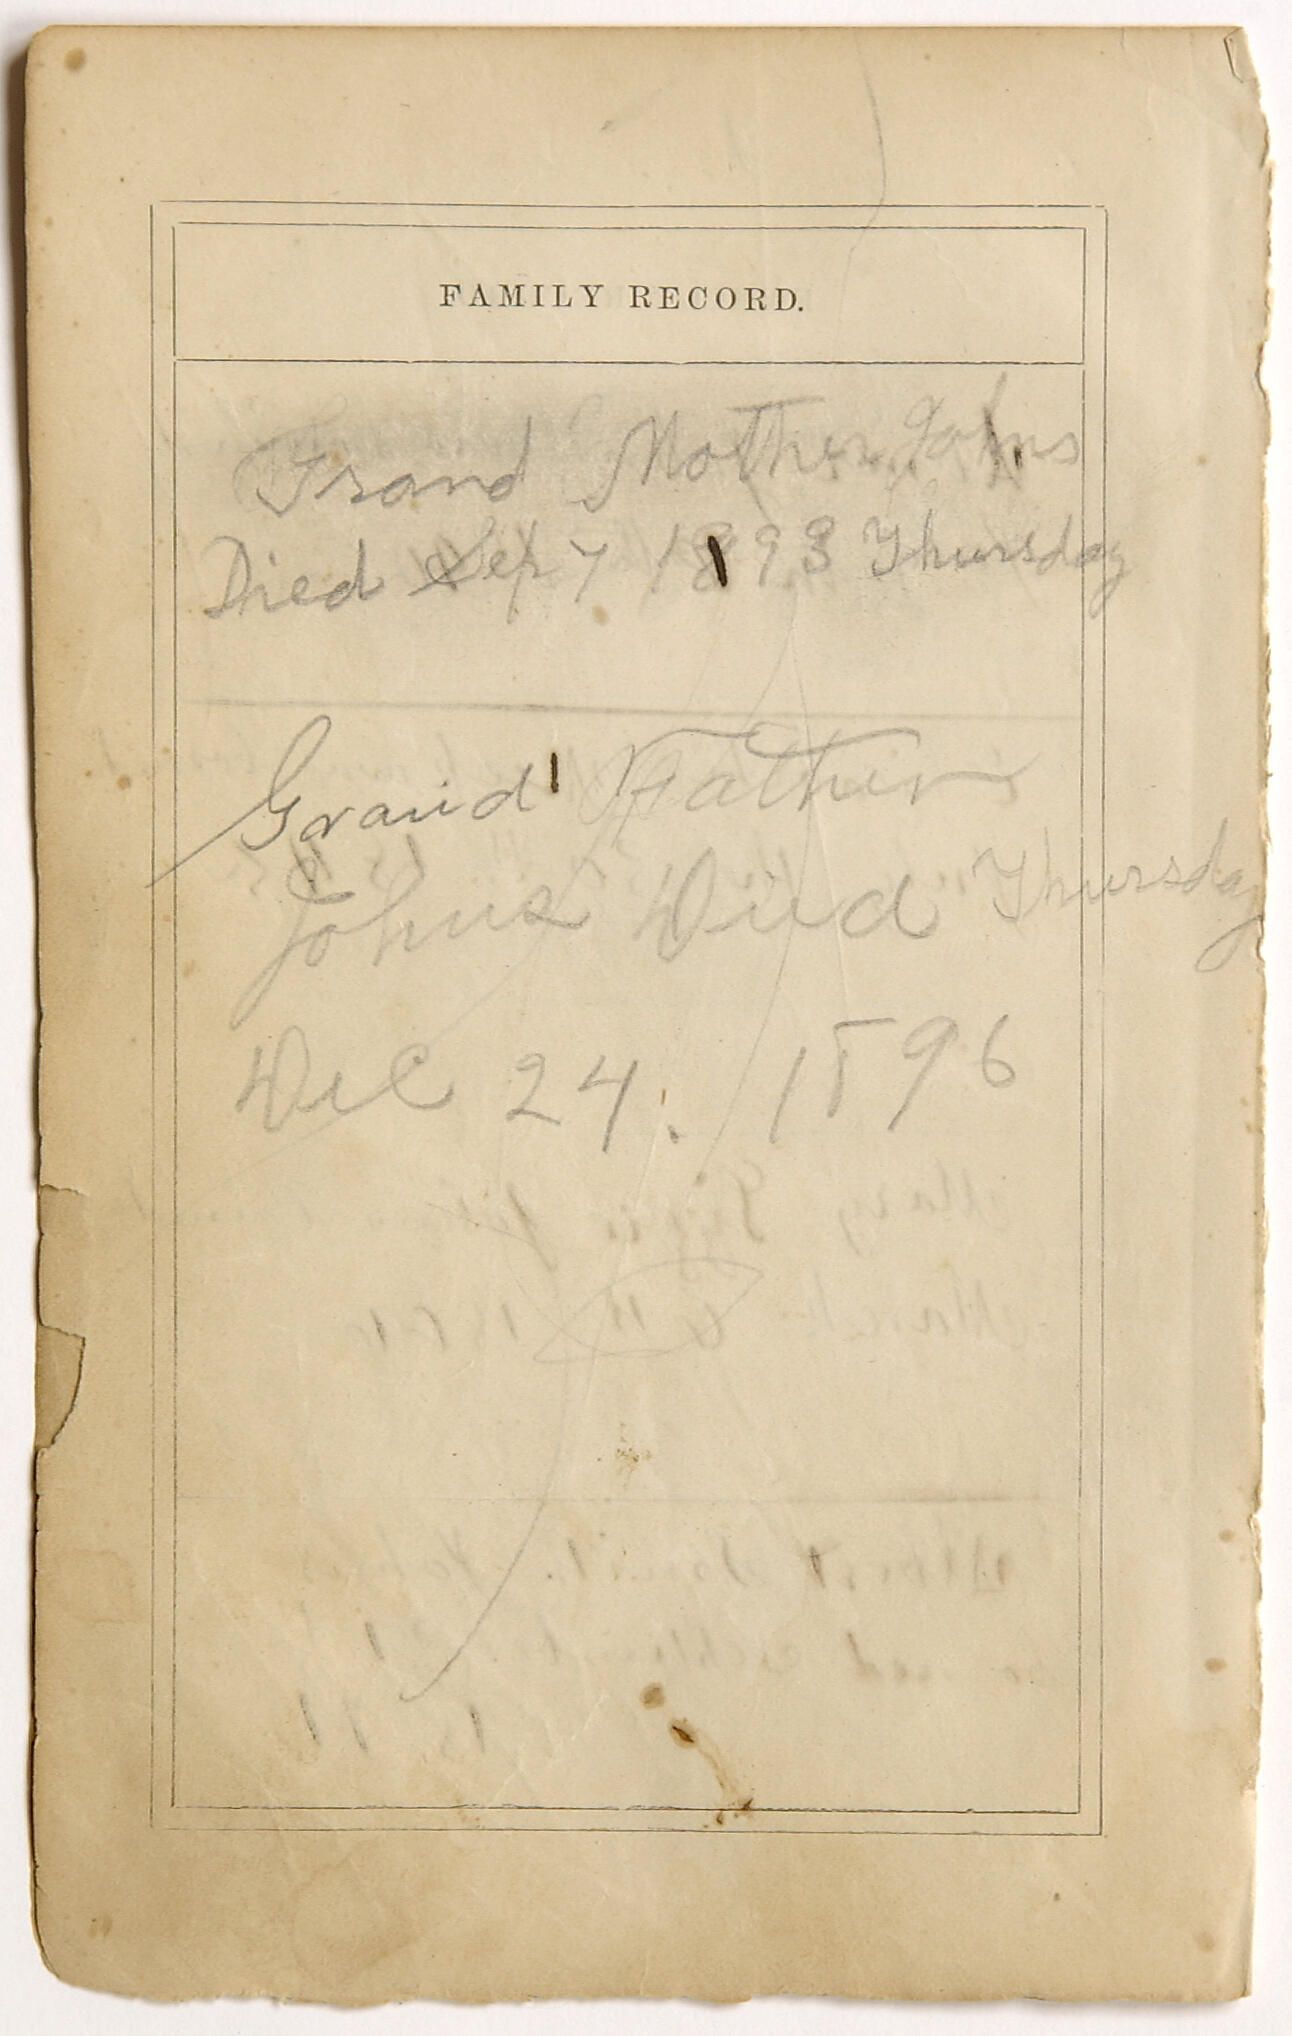 FAMILY RECORD.
Grand Mother Johns
Died Sep 7 1893 Thursday
Grand Father
Johns Died Thursday
Dec 24. 1896